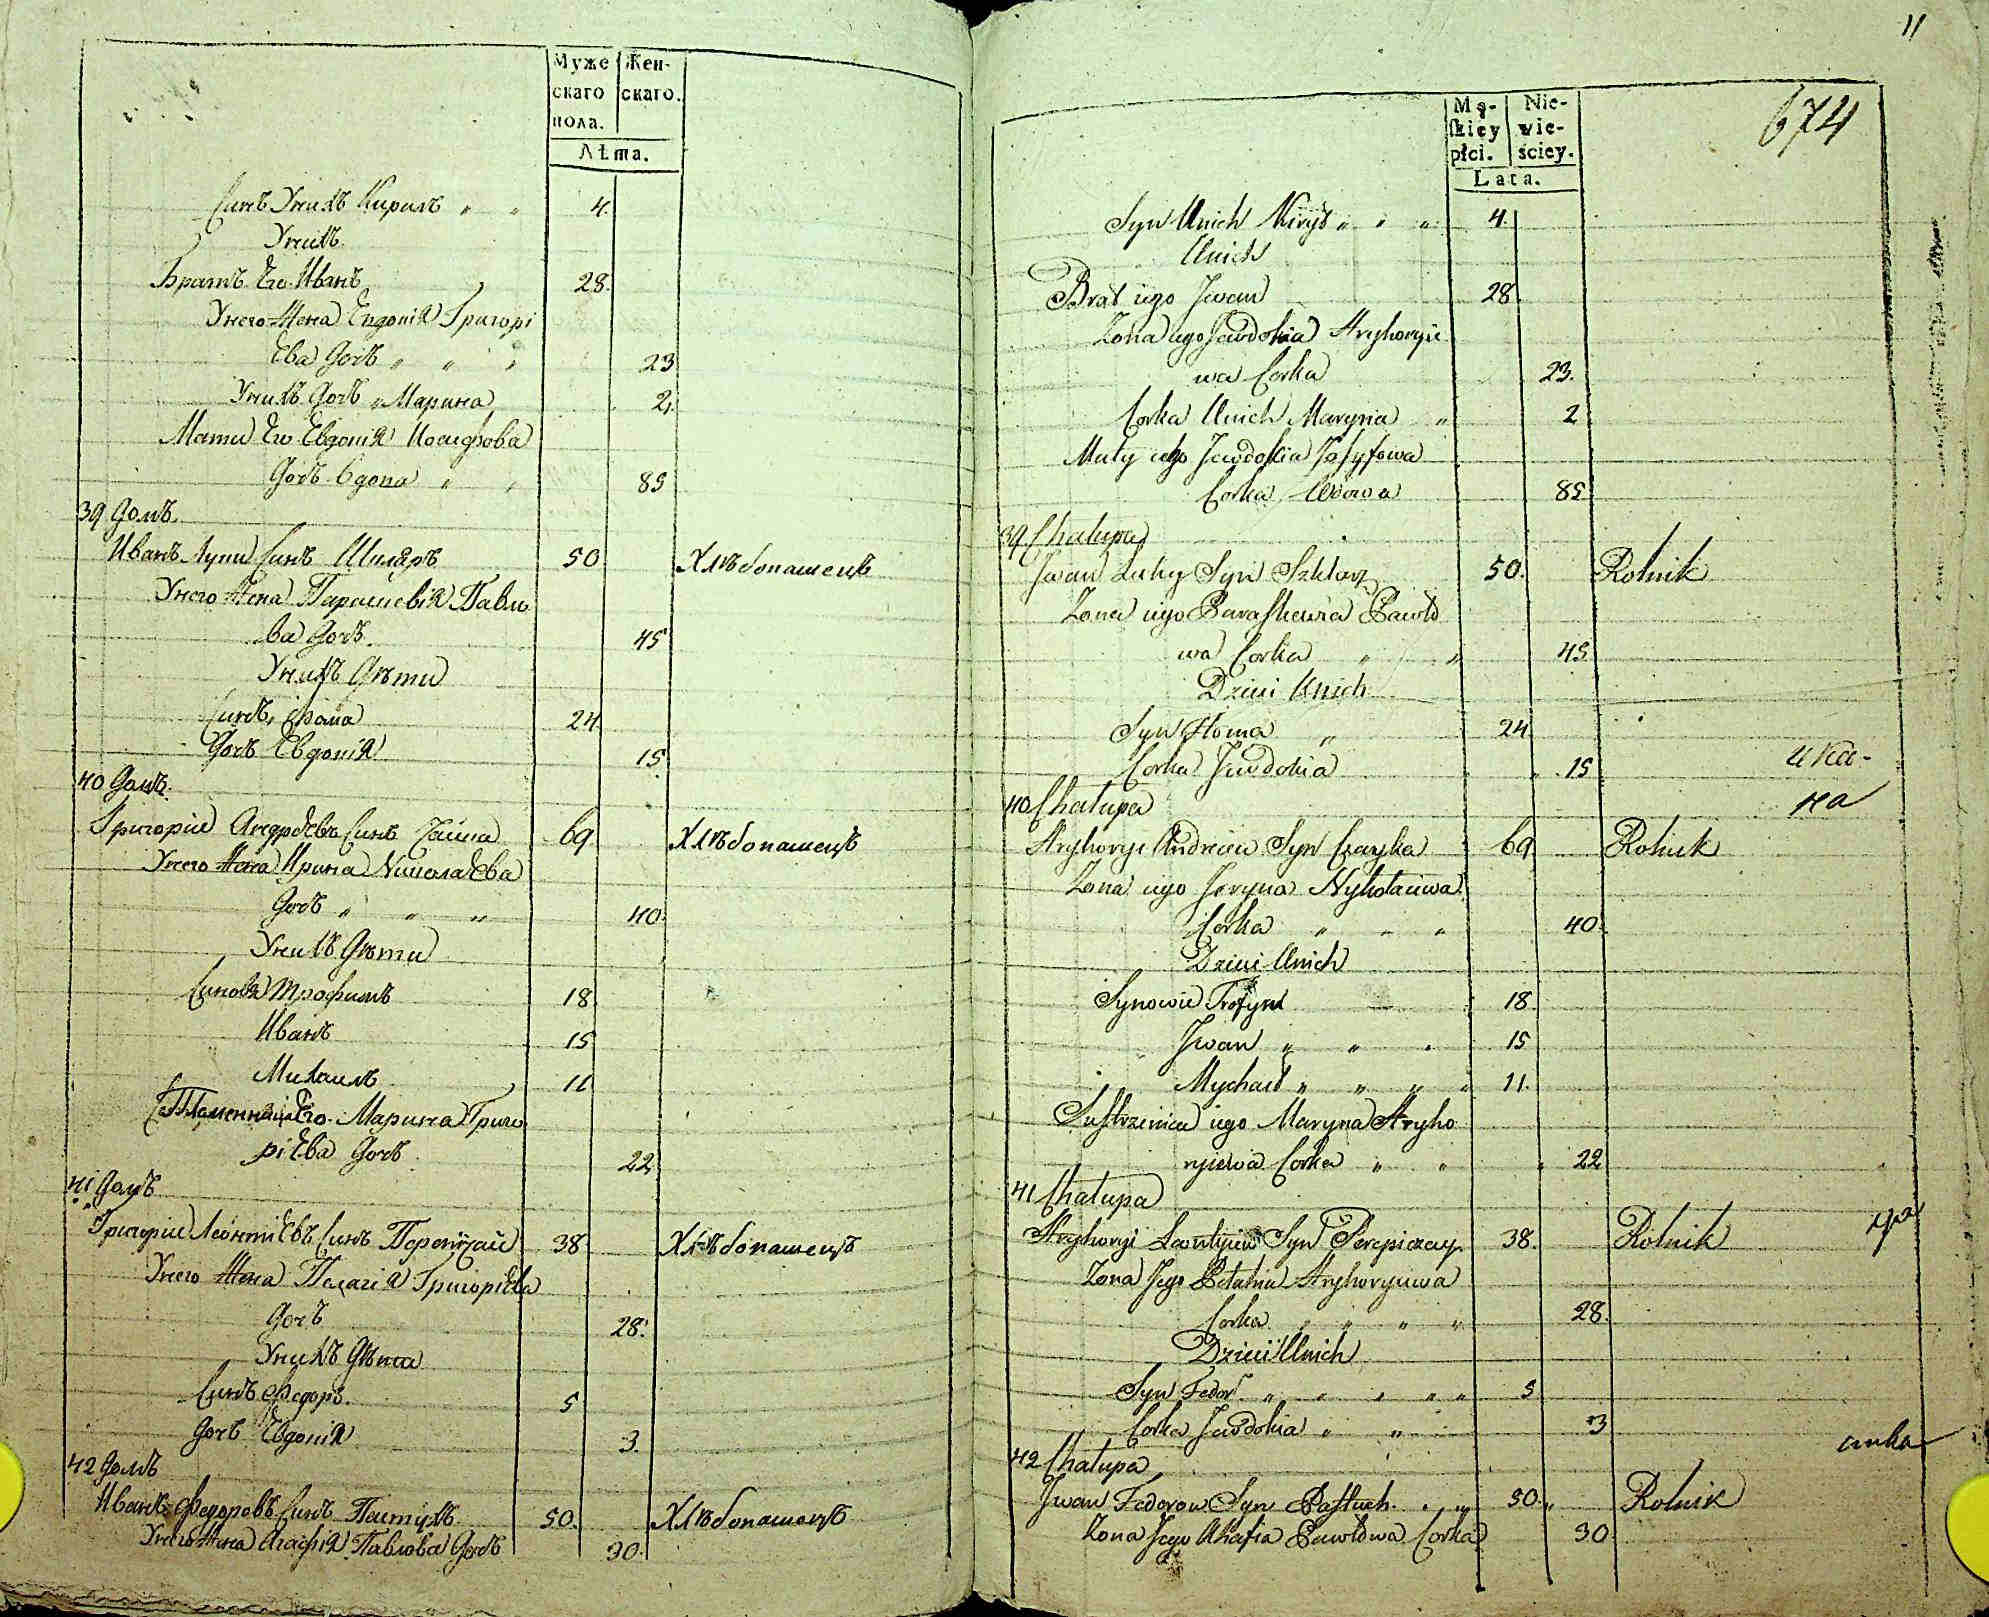 Муже
скаго
пола.
Жен-
скаго.
Лѣта.
Синъ Унихъ Кирилъ " " 4.
Унихъ
Братъ Его Иванъ 28.
Унего Жена Евдокія Григорі
ева дочъ " " 23
Унихъ Дочъ " Марина 2.
Мати Его Евдокія Иосифова
Дочъ вдова " 85
39 Домъ
Иванъ Луки Синъ Шкляръ 50 Хлѣбопашецъ
Унего Жена Параскевія Павло
ва Дочъ 45
Унихъ Дѣти
Синъ, Фома 24
Дочъ Евдокія 15
40 Домъ
Григорій Андрѣевъ Синъ Чайка 69 Хлѣбопашецъ
Унего Жена Ирина Николаева
Дочъ " " " 40.
Унихъ Дѣти
Синовя Трофимъ 18
Иванъ 15
Михаилъ 11
Его Марина Григо
ріева Дочъ 22
41 Домъ
Григорій Леонтіевъ Синъ Перепічай 38 Хлѣбопашецъ
Унего Жена Пелагія Григоріева
Дочъ 28.
Унихъ Дѣти
Синъ Федоръ 5
Дочъ Евдокія 3.
42 Домъ
Иванъ Федоровъ Синъ Пастухъ 50. Хлѣбопашецъ
Унего Жена Агафія Павлова Дочъ 30
11
674
Mę-
skiey
płci.
Nie-
wie-
ściey.
Lata.
Syn Unich Kirył " " " 4.
Unich
Brat iego Jwan 28
Zona iego Jewdokia Hryhoryie
wa Corka 23.
Corka Unich Maryna " 2
Maty iego Jewdokia Josyfowa
Corka Wdowa 85
39 Chałupa
Jwan Luky Syn Szklarz 50. Rolnik
Zona iego Paraskewia Pawło
wa Corka " " 45
Dzieci Unich
Syn Homa " 24
Corka Jewdokia 15
40 Chałupa
Hryhoryi Andreiew Syn Czayka 69 Rolnik
Zona iego Jeryna Nykołaiewa
Corka " " " 40.
Dzieci Unich
Synowie Trofym 18
Jwan " " 15
Mychaił " " " " 11.
Siostrzenica iego Maryna Hryho
ryiewa Corka " " 22
41 Chałupa
Hryhoryi Leontyiew Syn Perepiczay 38. Rolnik
Zona Jego Pelahia Hryhoryiewa
Corka " " " " 28.
Dzieci Unich
Syn Fedor " " " " " 5
Corka Jewdokia " " 3
42 Chałupa
Jwan Fedorow Syn Pastuch. " " 50 " Rolnik
Zona Jego Ahafia Pawłowa Corka 30